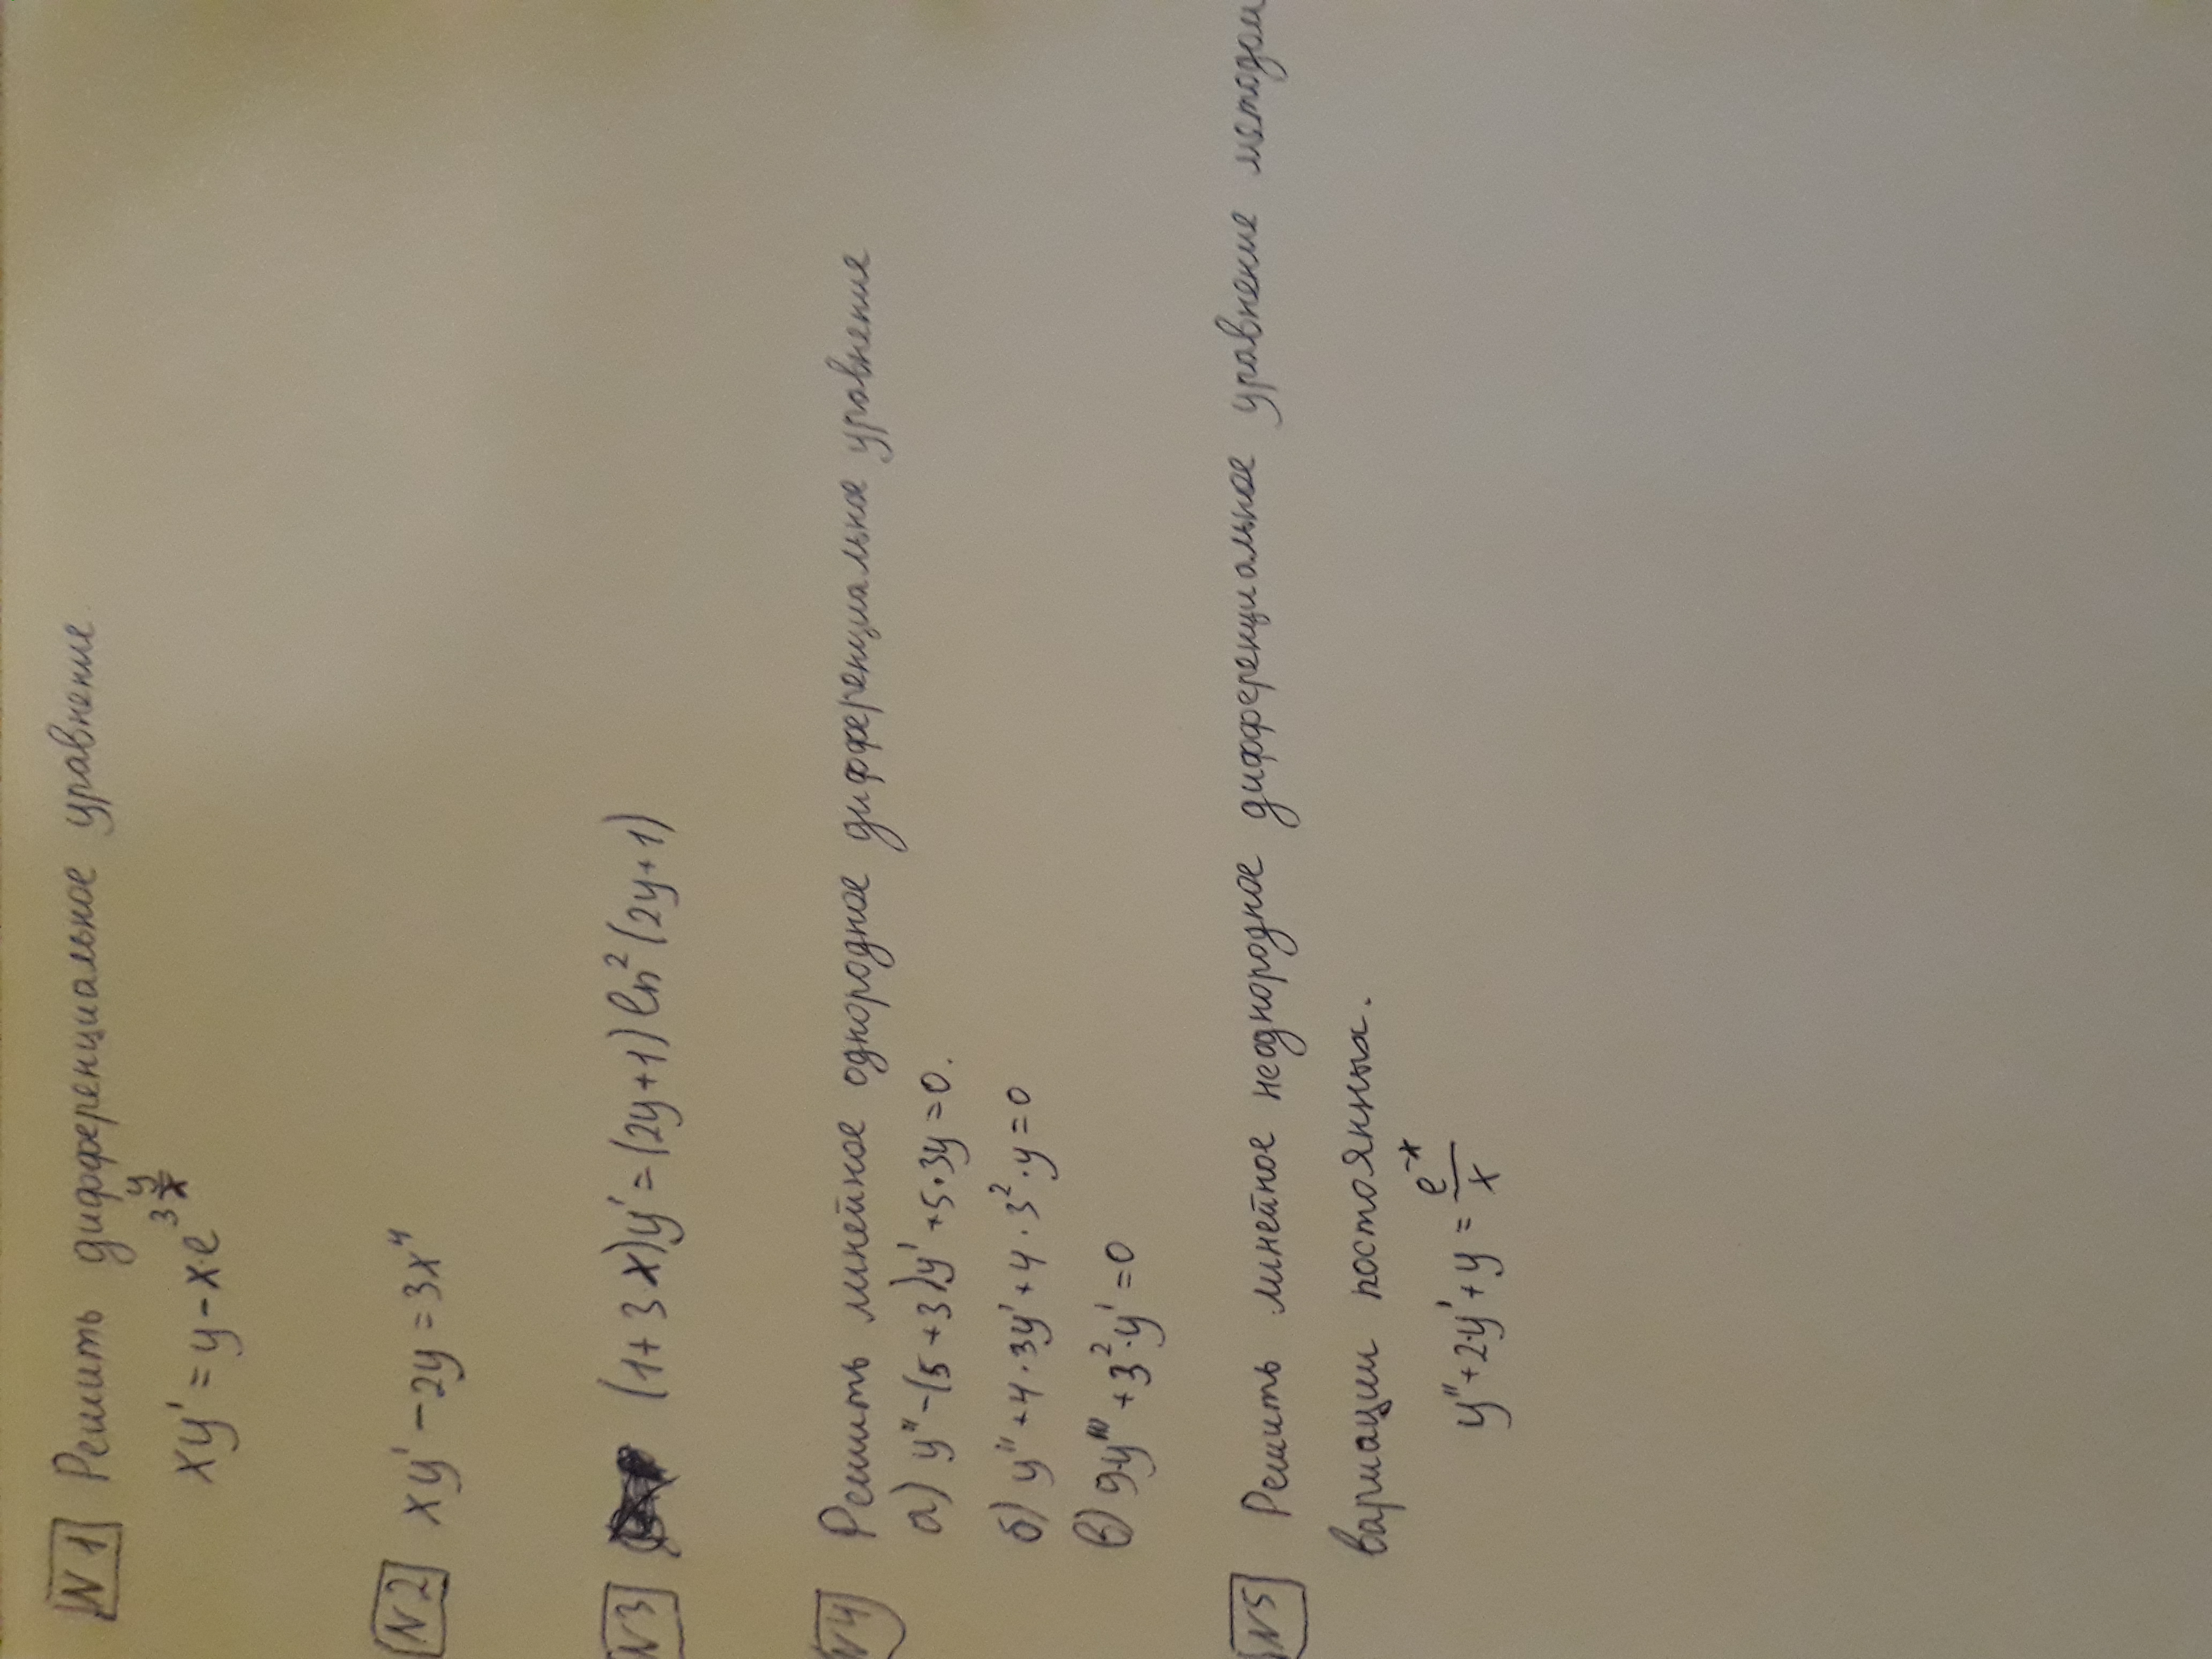 N1 Решить дифференциальное уравнение
xy' = y - x·e^{3\frac{y}{x}}
N2 xy' - 2y = 3x⁴
N3 (1+3x)y' = (2y+1)ln²(2y+1)
N4 Решить линейное однородное дифференциальное уравнения
а) y'' - (5+3)y' + 5·3y = 0.
б) y'' + 4·3y' + 4·3²·y = 0
в) 9y''' + 3²·y' = 0
N5 Решить линейное неоднородное дифференциальное уравнение методом
вариации постоянных.
y'' + 2·y' + y = \frac{e^{-x}}{x}